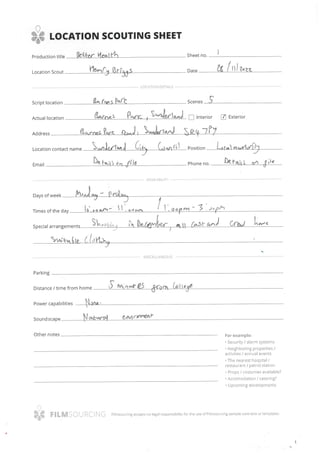 LOCATION SCOUTING SHEET
Production title Better Health Sheet no. 1
Location Scout Henry Briggs Date /11/2022
Script location Barnes Park Scenes 5
Actual location Barnes Park, Sunderland Interior Exterior
Address Barnes Park road, Sunderland SR4 7PY
Location contact name Sunderland City Council Position Local authority
Email Details on file Phone no. Details on file
Days of week Monday - Friday
Times of the day 11:00am / 1:00pm - 3:00pm
Special arrangements Shooting in December, all cast and crew have
Suitable clothing
Parking
Distance / time from home 5 minutes from college
Power capabilities None
Soundscape Natural
Other notes
For example:
• Security / alarm systems
• Neighboring properties / activities / annual events
• The nearest hospital / restaurant / petrol station
• Props / costumes available?
• Accomodation / catering?
• Upcoming developments
FILMSOURCING